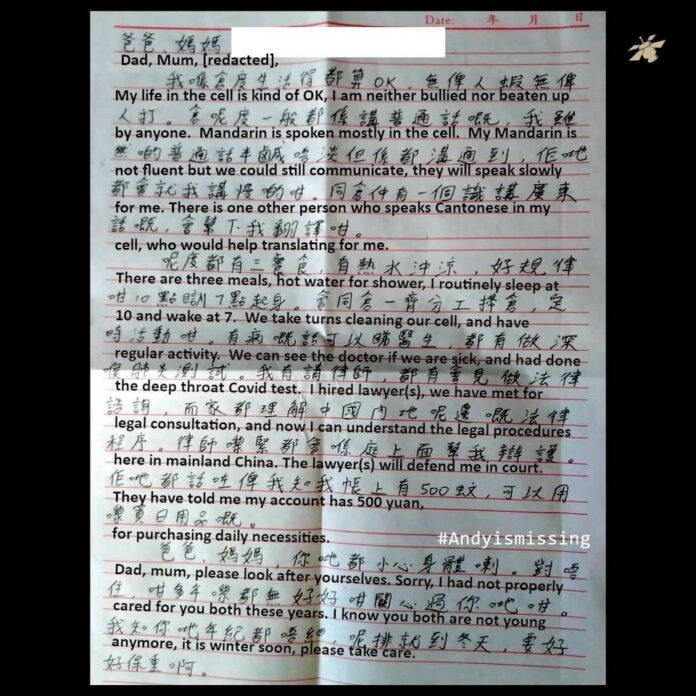 Date: 年 月 日
爸爸、媽媽
Dad, Mum, [redacted],
我喺倉度生活得都算OK，無俾人蝦無俾
My life in the cell is kind of OK, I am neither bullied nor beaten up
人打。倉呢度一般都係講普通話嘅，我雖
by anyone. Mandarin is spoken mostly in the cell. My Mandarin is
然啲普通話半鹹唔淡但係都溝通到，佢哋
not fluent but we could still communicate, they will speak slowly
都會就我講慢啲咁。同倉仲有一個識講廣東
for me. There is one other person who speaks Cantonese in my
話嘅，會幫下我翻譯咁。
cell, who would help translating for me.
呢度都有三餐食，有熱水沖涼，好規律
There are three meals, hot water for shower, I routinely sleep at
咁10點瞓7點起身。會同倉一齊分工擦倉，定
10 and wake at 7. We take turns cleaning our cell, and have
時活動咁。有病嘅話可以睇醫生，都有做深
regular activity. We can see the doctor if we are sick, and had done
喉肺炎測試。我有請律師，都有會見做法律
the deep throat Covid test. I hired lawyer(s), we have met for
諮詢，而家都理解中國內地呢邊嘅法律
legal consultation, and now I can understand the legal procedures
程序。律師嚟緊都會喺庭上面幫我辯護。
here in mainland China. The lawyer(s) will defend me in court.
佢哋都話咗俾我知我帳上有500蚊，可以用
They have told me my account has 500 yuan,
嚟買日用品嘅。
for purchasing daily necessities.
#Andyismissing
爸爸、媽媽，你哋都小心身體喇。對唔
Dad, mum, please look after yourselves. Sorry, I had not properly
住，咁多年嚟都無好好咁關心過你哋咁。
cared for you both these years. I know you both are not young
我知你哋年紀都唔細，呢排就到冬天，要好
anymore, it is winter soon, please take care.
好保重啊。